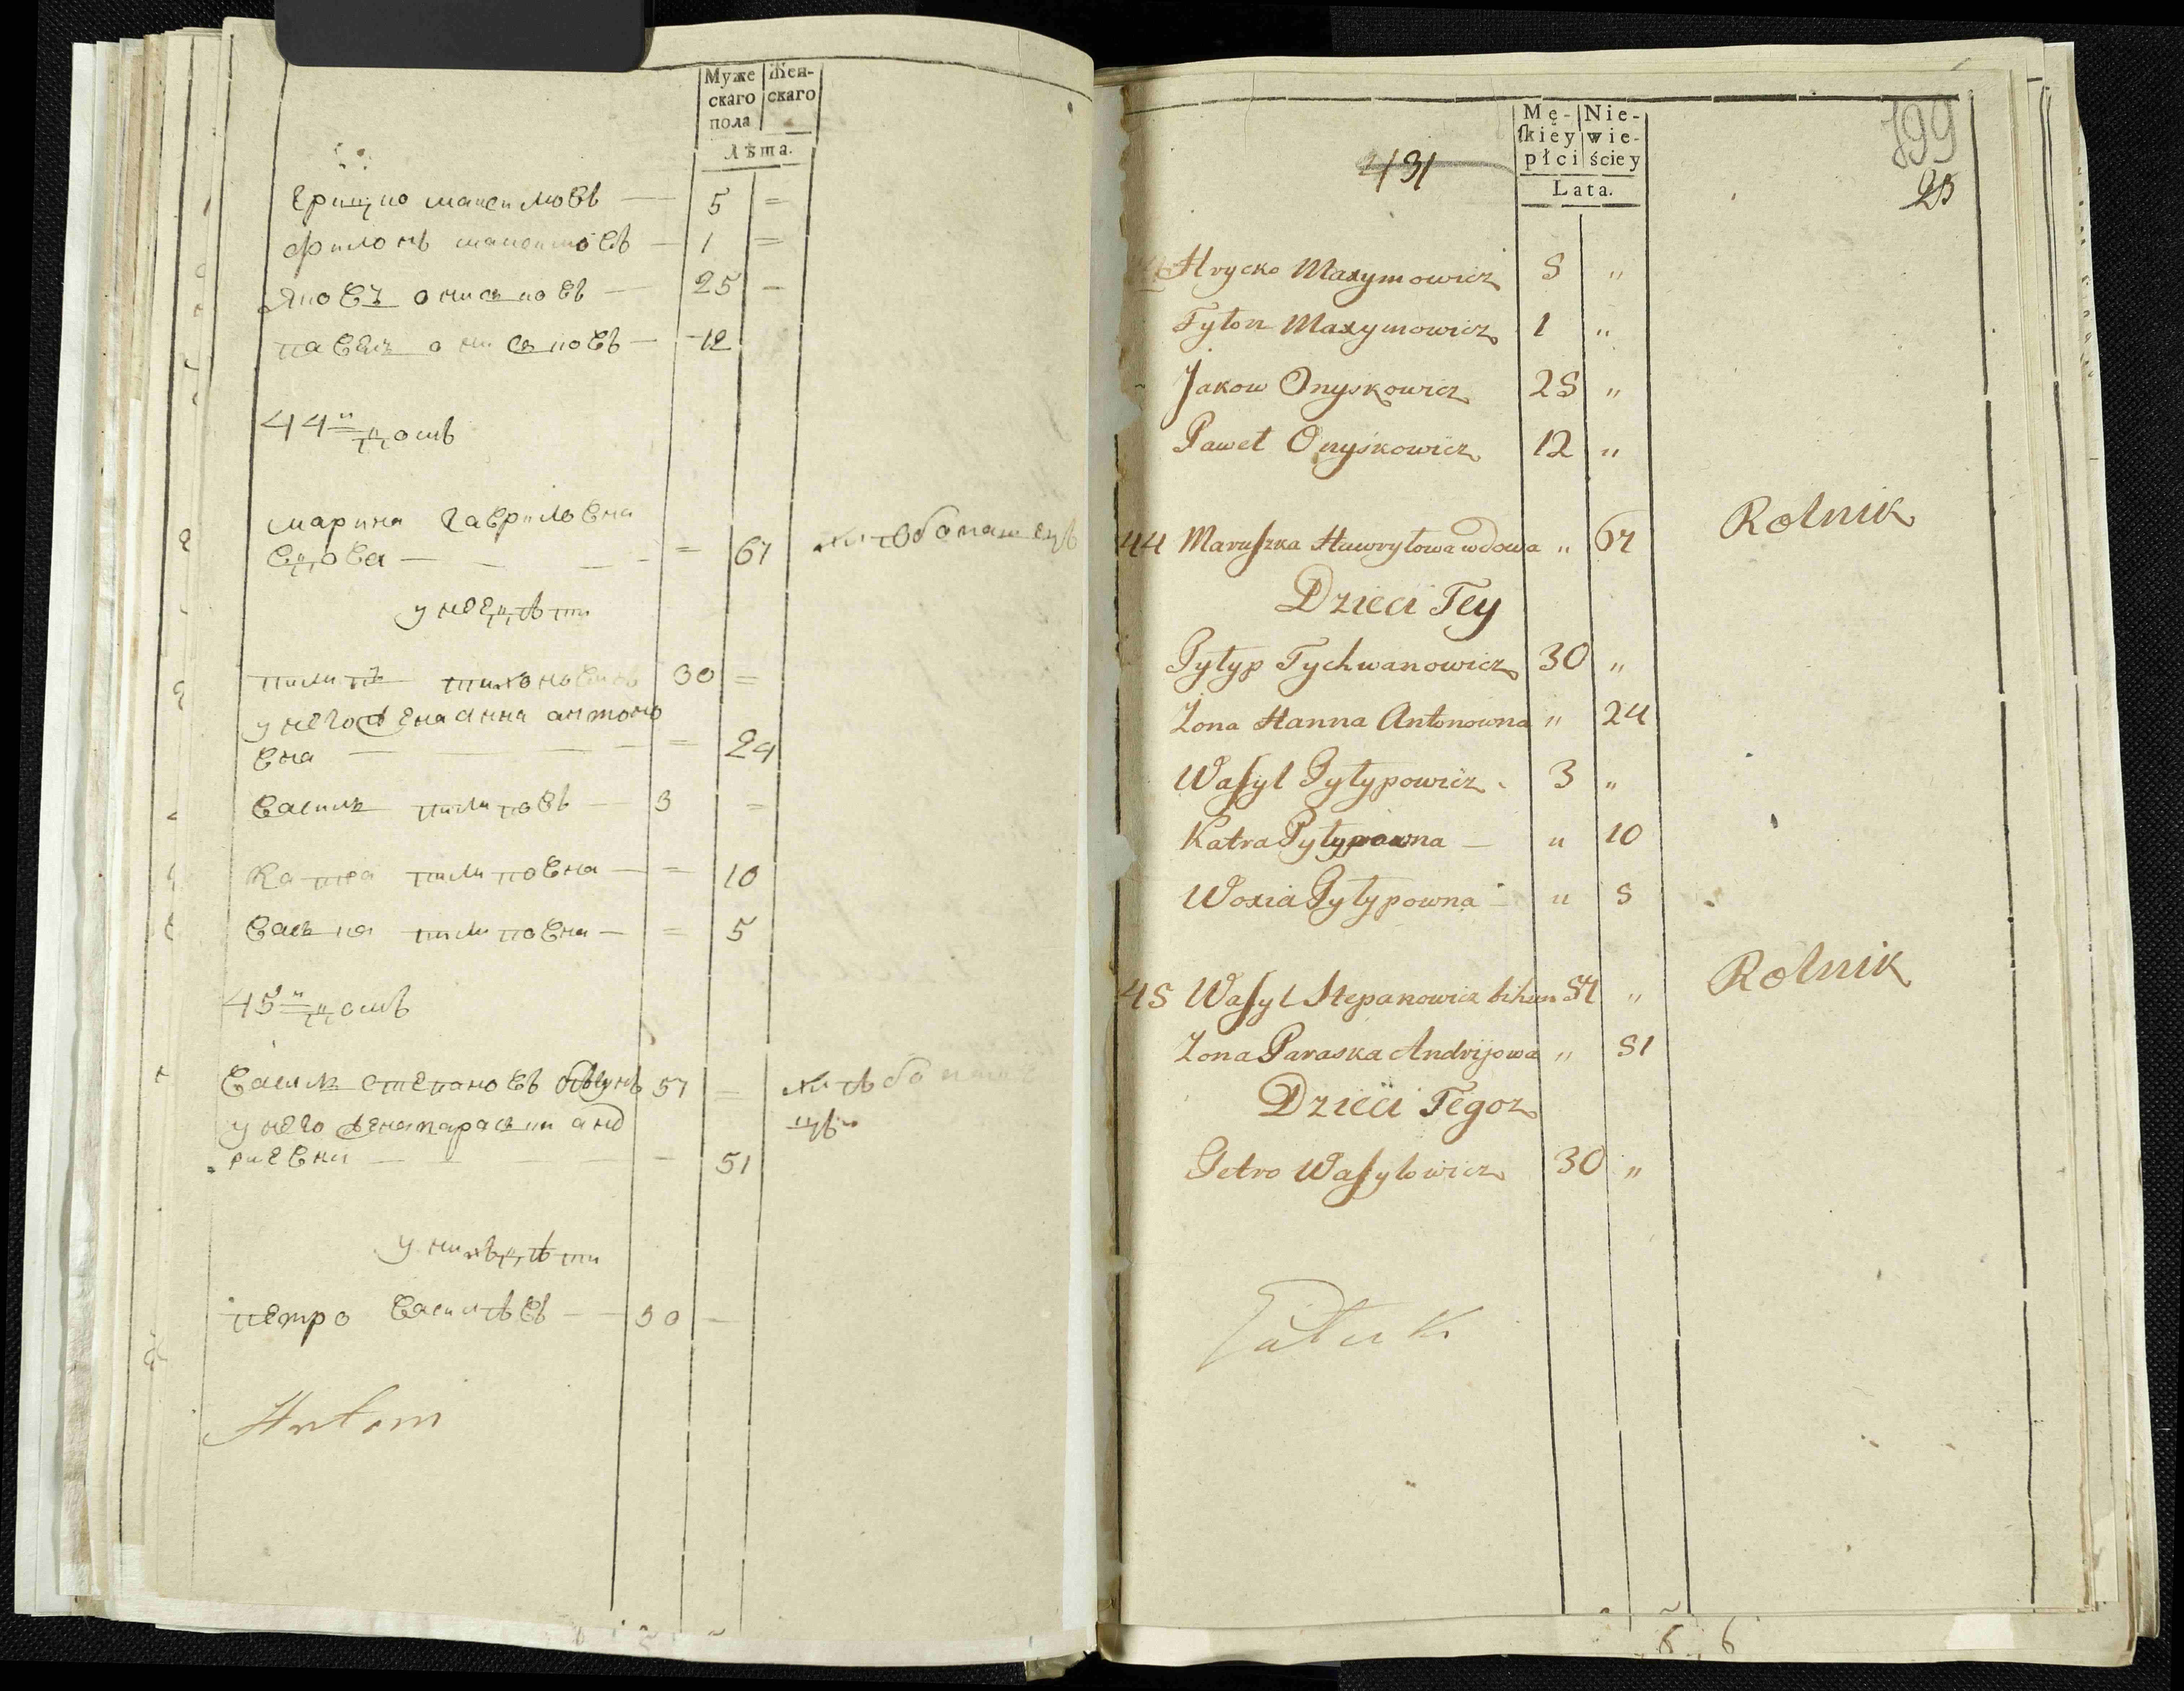 Муже Жен-
скаго скаго
пола
Лѣта.
грицко максимовъ — 5 =
филонъ максимовъ — 1 =
Яковъ онисковъ — 25 —
павелъ онисковъ — 12
44й домъ
марина гавриловна
вдова — = 67 хлѣбопашецъ
у нее дѣти
пилипъ тихоновъ 30 =
у него жена анна антоно
вна — = 24
василь пилиповъ — 3 =
Катра пилиповна — = 10
васька пилиповна — = 5
45й домъ
василь степановъ бѣгунъ 57 = хлѣбопаше
у него жена параска анд цъ
риевна — — 51
у нихъ дѣти
петро василѣвъ — 30 —
Antoni
Mę- Nie-
ſkiéy wie-
płci ściey
Lata.
431
199
25
Hrycko Maxymowicz 5 "
Fyłon Maxymowicz 1 "
Jakow Onyskowicz 25 "
Paweł Onyskowicz 12 "
44 Maruſzka Hawryłowa wdowa " 67 Rolnik
Dzieci Tey
Pyłyp Tychwanowicz 30 "
Zona Hanna Antonowna " 24
Waſyl Pyłypowicz 3 "
Katra Pyłypowna — " 10
Woxia Pyłypowna — " 5
45 Waſyl Stepanowicz bihun 57 " Rolnik
Zona Paraska Andrijowa " 51
Dzieci Tegoz
Petro Waſylowicz 30 "